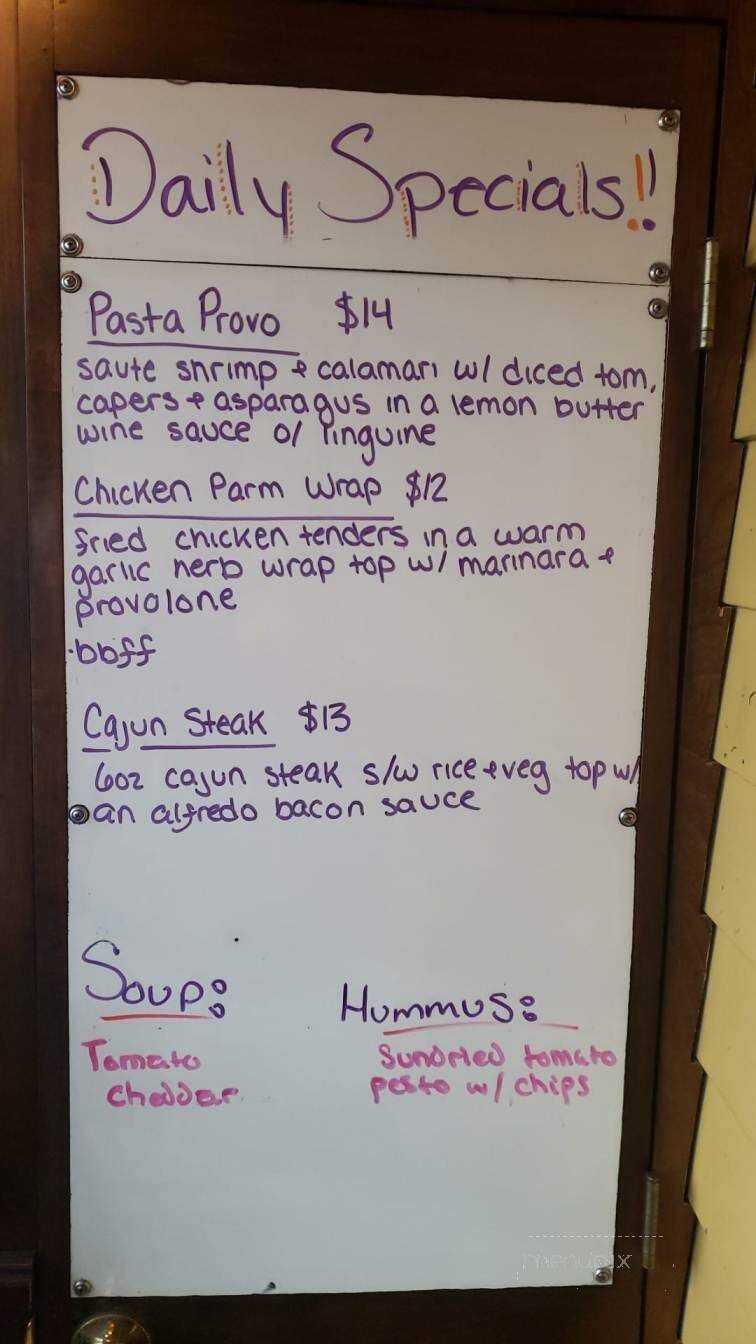 Daily Specials!!
Pasta Provo $14
saute shrimp & calamari w/ diced tom,
capers & asparagus in a lemon butter
wine sauce o/ linguine
Chicken Parm Wrap $12
fried chicken tenders in a warm
garlic herb wrap top w/ marinara &
provolone
·bbff
Cajun Steak $13
6oz cajun steak s/w rice & veg top w/
an alfredo bacon sauce
Soup:
Tomato
cheddar
Hummus:
Sundried tomato
pesto w/ chips
menupix